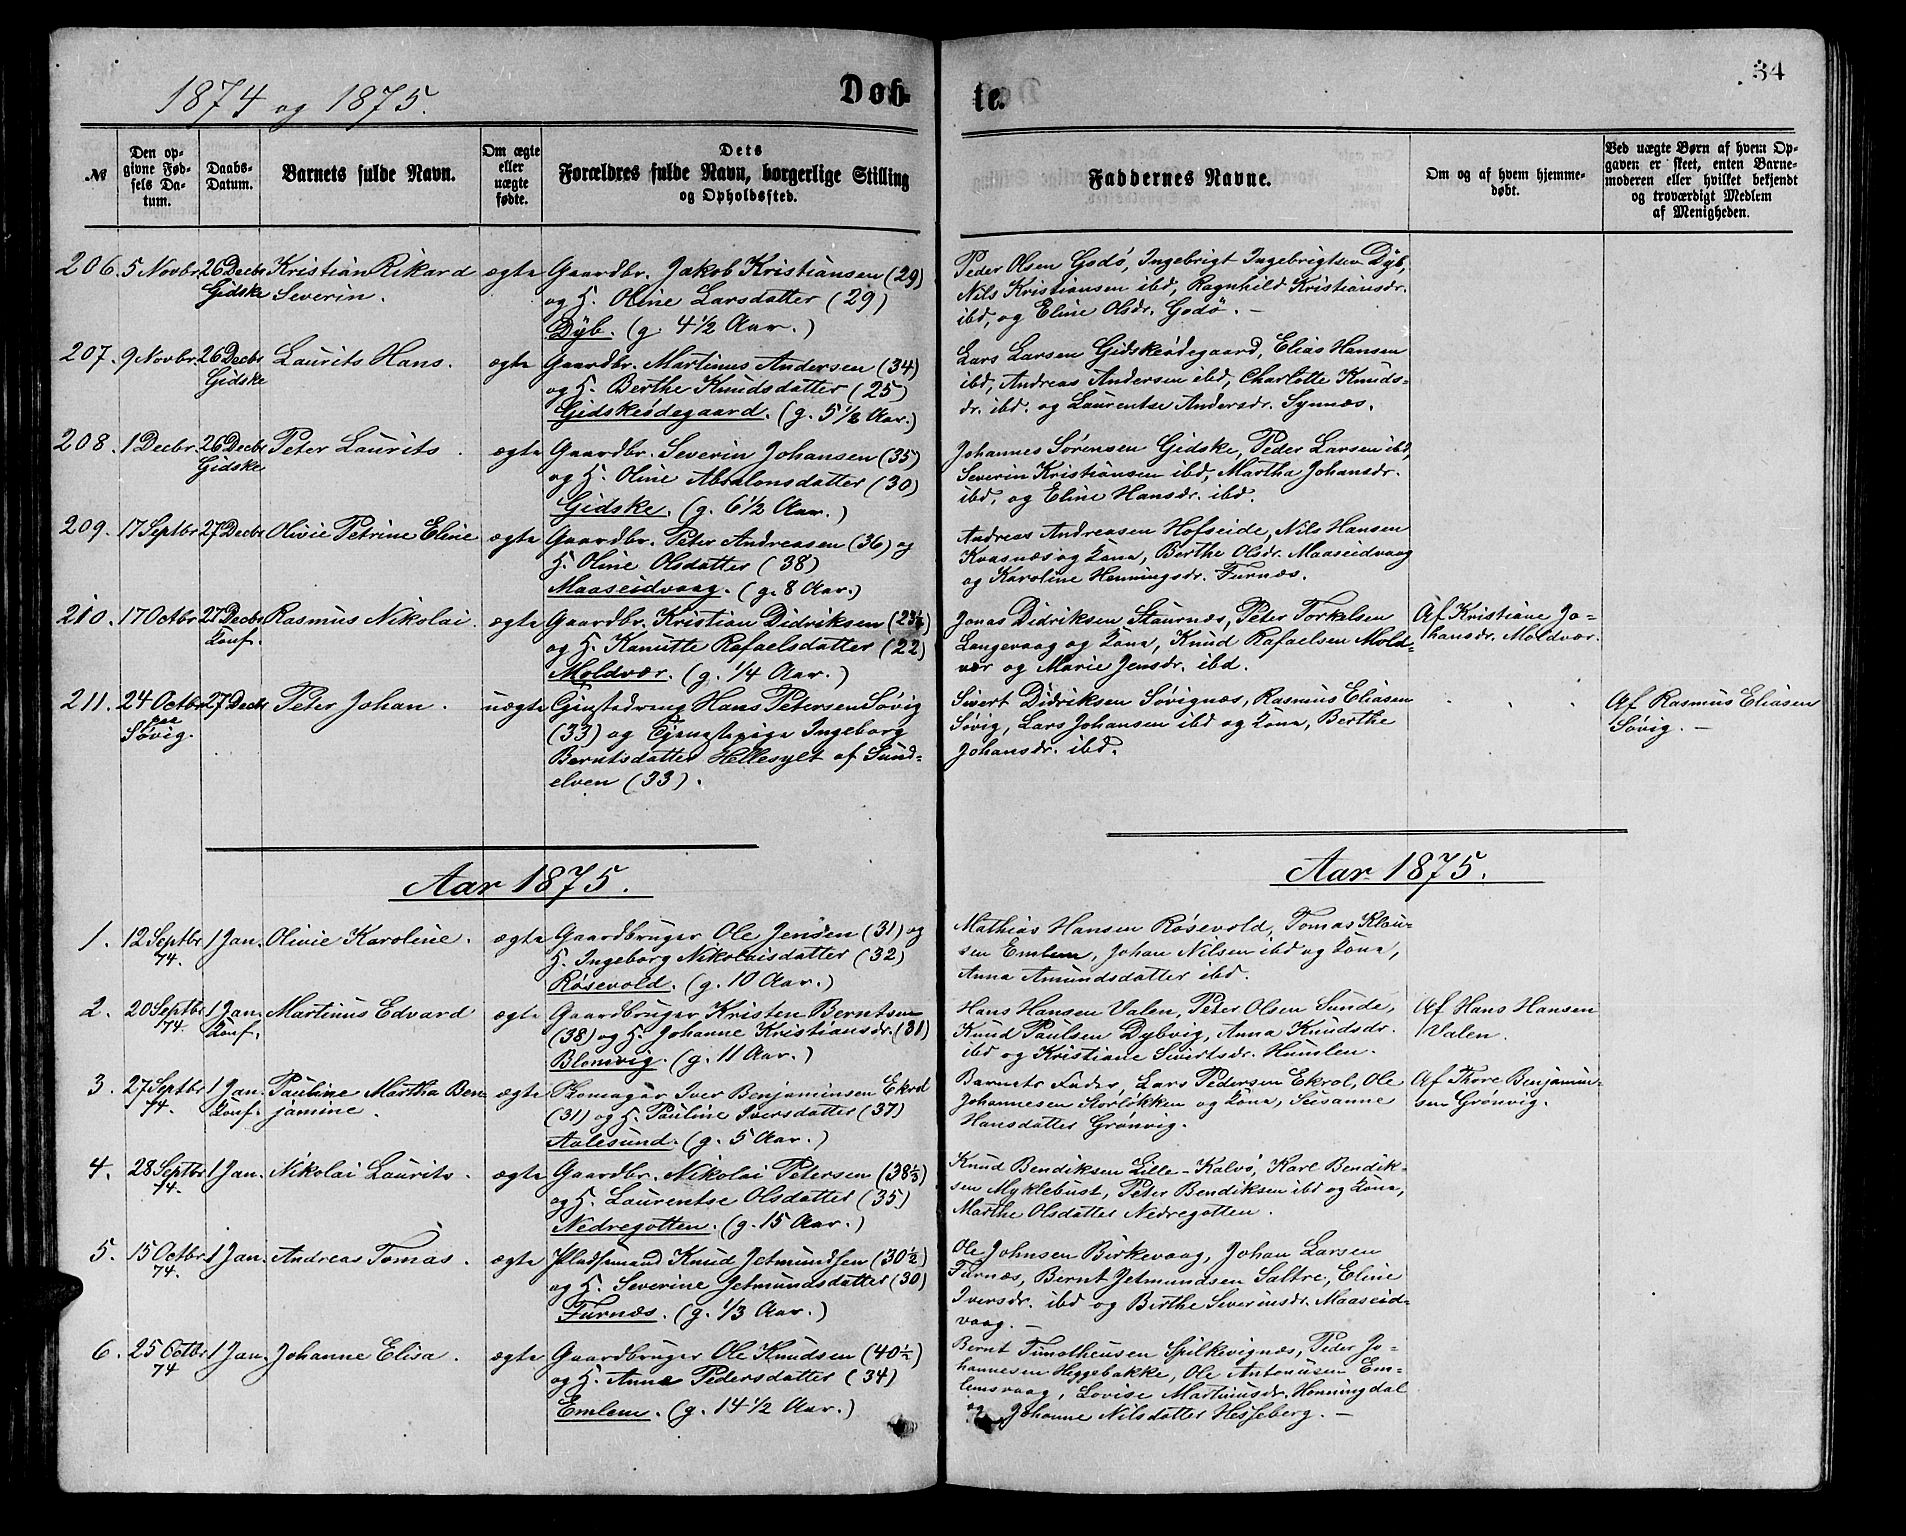 1874 og 1875.
Døb-
te.
34
№
Den op-
givne Fød-
sels Da-
tum.
Daabs-
Datum.
Barnets fulde Navn.
Om ægte
eller
uægte
fødte.
Dets
Forældres fulde Navn, borgerlige Stilling
og Opholdssted.
Faddernes Navne.
Om og af hvem hjemme-
døbt.
Ved uægte Børn af hvem Op-
gaven er skeet, enten Barne-
moderen eller hvilket bekjendt
og troværdigt Medlem
af Menigheden.
206. 5 Novbr. 26 Decbr. Kristian Rikard ægte Gaardbr. Jakob Kristiansen (29)
Gidske Severin. og H. Oline Larsdatter (29)
Dyb. (g. 4 1/2 Aar.)
Peder Olsen Godø, Ingebrigt Ingebrigtsen Dyb,
Nils Kristiansen ibd, Ragnhild Kristiansdr.
ibd, og Eline Olsdr. Godø. -
207. 9 Novbr. 26 Decbr Laurits Hans. ægte Gaardbr. Martinus Andersen (34)
Gidske og H. Berthe Knudsdatter (25)
Gidskeødegaard. (g. 5 1/2 Aar.)
Lars Larsen Gidskeødegaard, Elias Hansen
ibd, Andreas Andersen ibd, Charlotte Knuds-
dr. ibd. og Laurentse Andersdr. Synnæs.
208. 1 Decbr. 26 Decbr Peter Laurits. ægte Gaardbr. Severin Johansen (35)
Gidske og H. Oline Absalonsdatter (30)
Gidske. (g. 6 1/2 Aar.)
Johannes Sørensen Gidske, Peder Larsen ibd,
Severin Kristiansen ibd, Martha Johansdr.
ibd, og Eline Hansdr. ibd.
209. 17 Septbr 27 Decbr Olivie Petrine Eline ægte Gaardbr. Peter Andreasen (36) og
H. Oline Olsdatter (38)
Maaseidvaag. (g. 8 Aar.)
Andreas Andreasen Hofseide, Nils Hansen
Kvasnæs og Kona, Berthe Olsdr. Maaseidvaag
og Karoline Henningsdr. Furnæs.
210. 17 Octbr 27 Decbr Rasmus Nikolai. ægte Gaardbr. Kristian Didriksen
Konf. og H. Kanutte Rafaelsdatter (22)
Moldvær. (g. 1/4 Aar.)
Jonas Didriksen Staurnæs, Peter Torkelsen
Langevaag og Kona, Knud Rafaelsen Mold-
vær og Marie Jensdr. ibd.
Af Kristiane Jo-
hansdr. Moldvær.
211. 24 Octbr 27 Decbr Peter Johan. uægte Gjæstedreng Hans Petersen Søvig
paa (33) og Tjenestepige Ingeborg
Søvig. Berntsdatter Hellesylt af Sund-
elven (33).
Sivert Didriksen Søvignæs, Rasmus Eliasen
Søvig, Lars Johansen ibd og Kona, Berthe
Johansdr. ibd.
Af Rasmus Eliasen
Søvig. -
Aar 1875.
Aar 1875.
1. 12 Septbr 1 Jan. Olivie Karoline. ægte Gaardbruger Ole Jensen (31) og
74. H. Ingeborg Nikolaisdatter (32)
Røsevold. (g. 10 Aar.)
Mathias Hansen Røsevold, Tomas Klau-
sen Emlem, Johan Nilsen ibd og Kona,
Anna Amundsdatter ibd.
2. 20 Septbr 1 Jan. Martinus Edvard ægte Gaardbruger Kristen Berntsen
74. Konf. (38) og H. Johanne Kristiansdr. (31)
Blomvig. (g. 11 Aar.)
Hans Hansen Valen, Peter Olsen Sunde,
Knud Paulsen Dybvig, Anna Knudsdr.
ibd og Kristiane Sivertsdr. Humlen.
Af Hans Hansen
Valen.
3. 27 Septbr 1 Jan. Pauline Martha Ben- ægte Skomager Iver Benjaminsen Ekrol
74. Konf. jamine. (31) og H. Pauline Iversdatter (37)
Aalesund. (g. 5 Aar.)
Barnets Fader, Lars Pedersen Ekrol, Ole
Johannesen Storløkken og Kona, Susanne
Hansdatter Grønvig.
Af Thore Benjamin-
sen Grønvig.
4. 28 Septbr 1 Jan. Nikolai Laurits. ægte Gaardbr. Nikolai Petersen (38 1/3)
74. og H. Laurentse Olsdatter (35)
Nedregotten. (g. 15 Aar.)
Knud Bendiksen Lille-Kalvø, Karl Bendik-
sen Myklebust, Peter Bendiksen ibd og Kona,
Marthe Olsdatter Nedregotten.
5. 15 Octbr 1 Jan. Andreas Tomas. ægte Pladsmand Knud Jetmundsen (30 1/2)
74. og H. Severine Jetmundsdatter (30)
Furnæs. (g. 1/3 Aar.)
Ole Johnsen Birkevaag, Johan Larsen
Furnæs, Bernt Jetmundsen Saltre, Eline
Iversdr. ibd og Berthe Severinsdr. Maaseid-
vaag. -
6. 25 Octbr 1 Jan. Johanne Elisa. ægte Gaardbruger Ole Knudsen (40 1/2)
74 og H. Anne Pedersdatter (34)
Emlem. (g. 14 1/2 Aar.)
Bernt Timotheusen Spilkevignæs, Peder Jo-
hannesen Heggebakke, Ole Antonusen Em-
lemsvaag, Lovise Martinusdr. Honningdal
og Johanne Nilsdatter Hesseberg. -